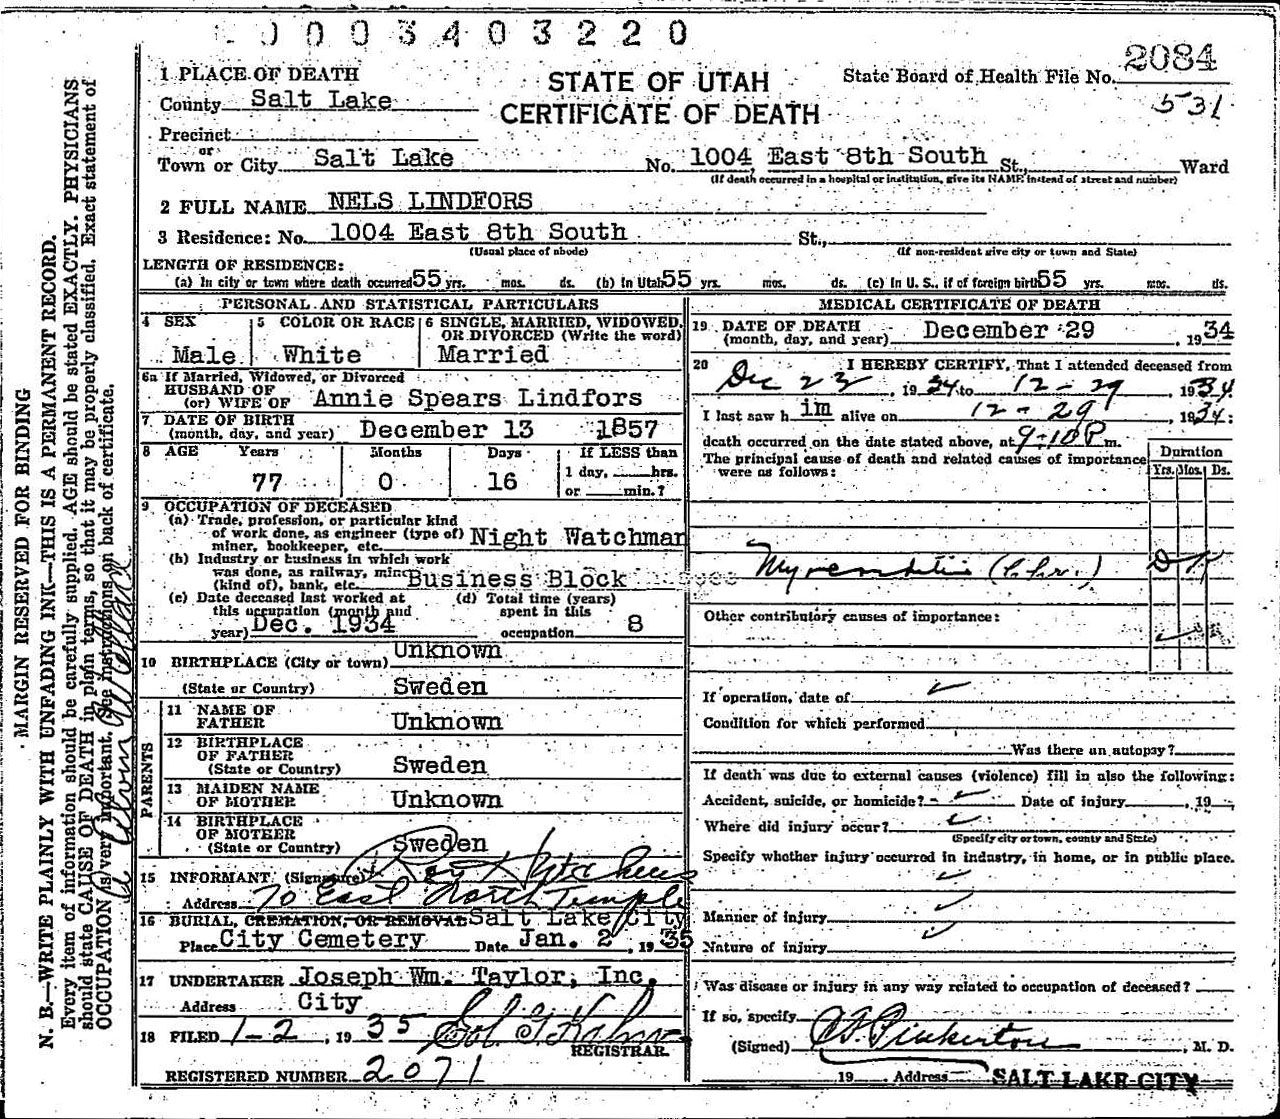 0 0 0 3 4 0 3 2 2 0
2084
1 PLACE OF DEATH
STATE OF UTAH
State Board of Health File No.
County Salt Lake
CERTIFICATE OF DEATH
531
Precinct
or
Town or City Salt Lake No. 1004 East 8th South St., Ward
(If death occurred in a hospital or institution, give its NAME instead of street and number)
2 FULL NAME NELS LINDFORS
3 Residence: No. 1004 East 8th South St.,
(Usual place of abode) (If non-resident give city or town and State)
LENGTH OF RESIDENCE:
(a) In city or town where death occurred 55 yrs. mos. ds. (b) In Utah 55 yrs. mos. ds. (c) In U. S., if of foreign birth 55 yrs. mos. ds.
PERSONAL AND STATISTICAL PARTICULARS
4 SEX Male
5 COLOR OR RACE White
6 SINGLE, MARRIED, WIDOWED, OR DIVORCED (Write the word) Married
6a If Married, Widowed, or Divorced
HUSBAND OF
(or) WIFE OF Annie Spears Lindfors
7 DATE OF BIRTH
(month, day, and year) December 13 1857
8 AGE Years Months Days If LESS than
77 0 16 1 day, hrs.
or min.?
9 OCCUPATION OF DECEASED
(a) Trade, profession, or particular kind
of work done, as engineer (type of)
miner, bookkeeper, etc. Night Watchman
(b) Industry or business in which work
was done, as railway, mine
(kind of), bank, etc. Business Block
(c) Date deceased last worked at
this occupation (month and
year) Dec. 1934
(d) Total time (years)
spent in this
occupation 8
10 BIRTHPLACE (City or town) Unknown
(State or Country) Sweden
PARENTS
11 NAME OF
FATHER Unknown
12 BIRTHPLACE
OF FATHER
(State or Country) Sweden
13 MAIDEN NAME
OF MOTHER Unknown
14 BIRTHPLACE
OF MOTHER
(State or Country) Sweden
15 INFORMANT (Signature) Roy
Address 70 East North Temple
16 BURIAL, CREMATION, OR REMOVAL Salt Lake City
Place City Cemetery Date Jan. 2, 1935
17 UNDERTAKER Joseph Wm. Taylor, Inc.
Address City
18 FILED 1-2, 1935
REGISTRAR.
REGISTERED NUMBER 2071
MEDICAL CERTIFICATE OF DEATH
19 DATE OF DEATH
(month, day, and year) December 29, 1934
20 I HEREBY CERTIFY, That I attended deceased from
Dec 23, 1934 to 12-29 1934
I last saw h im alive on 12-29 1934.
death occurred on the date stated above, at 9-10 P m.
The principal cause of death and related causes of importance
were as follows:
Duration
Yrs. Mos. Ds.
Myocarditis (Chr.)
Other contributory causes of importance:
If operation, date of
Condition for which performed
Was there an autopsy?
If death was due to external causes (violence) fill in also the following:
Accident, suicide, or homicide? Date of injury , 19
Where did injury occur?
(Specify city or town, county and State)
Specify whether injury occurred in industry, in home, or in public place.
Manner of injury
Nature of injury
Was disease or injury in any way related to occupation of deceased?
If so, specify
(Signed) Pinkerton, M. D.
19 Address SALT LAKE CITY
MARGIN RESERVED FOR BINDING
N. B.—WRITE PLAINLY WITH UNFADING INK—THIS IS A PERMANENT RECORD.
Every item of information should be carefully supplied. AGE should be stated EXACTLY. PHYSICIANS
should state CAUSE OF DEATH in plain terms, so that it may be properly classified. Exact statement of
OCCUPATION is very important. See instructions on back of certificate.